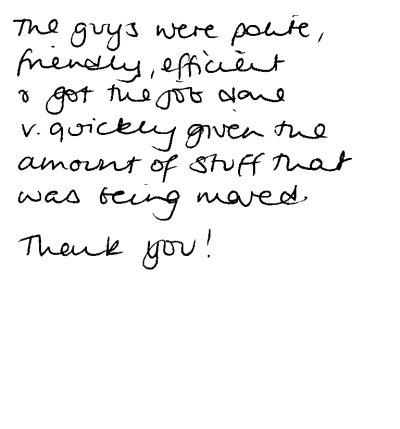 The guys were polite,
friendly, efficient
& got the job done
v. quickly given the
amount of stuff that
was being moved.
Thank you!